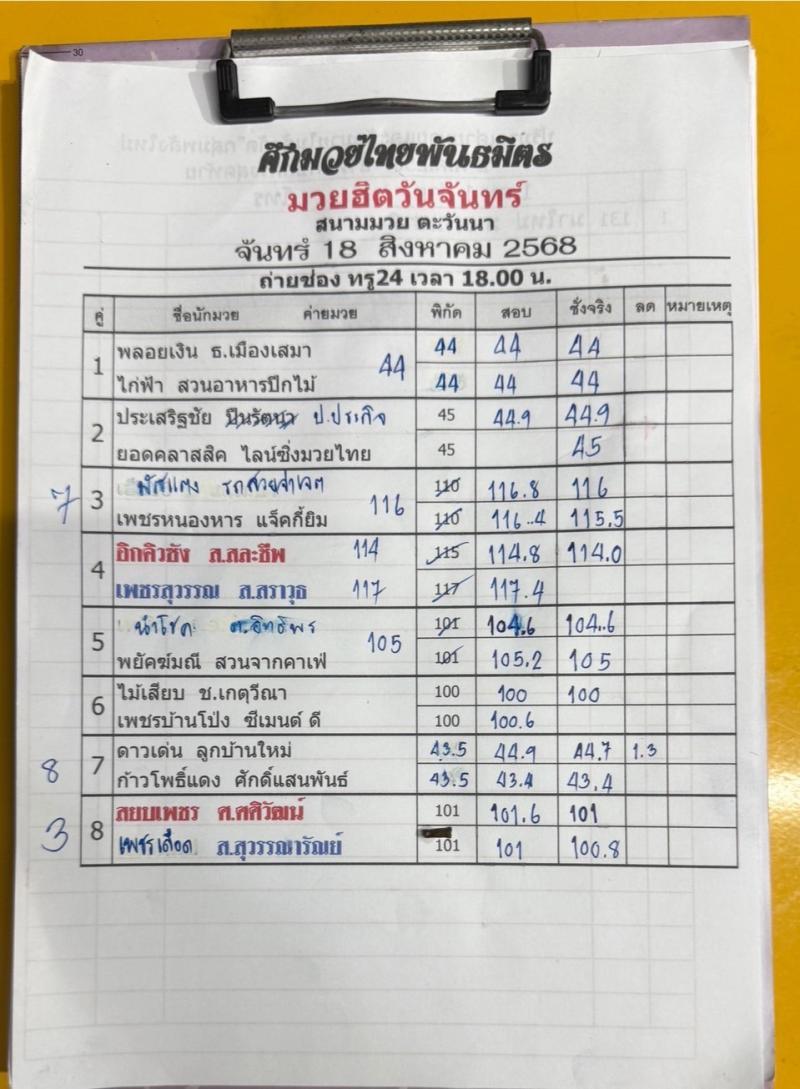 30
ศึกมวยไทยพันธมิตร
มวยฮิตวันจันทร์
สนามมวย ตะวันนา
จันทร์ 18 สิงหาคม 2568
ถ่ายช่อง ทรู24 เวลา 18.00 น.
คู่ ชื่อนักมวย ค่ายมวย พิกัด สอบ ชั่งจริง ลด หมายเหตุ
1 พลอยเงิน ธ.เมืองเสมา 44 44 44 44
ไก่ฟ้า สวนอาหารปีกไม้ 44 44 44
2 ประเสริฐชัย ปืนรัตนา ป.ประกิจ 45 44.9 44.9
ยอดคลาสสิค ไลน์ซิ่งมวยไทย 45 45
7 3 116 110 116.8 116
เพชรหนองหาร แจ็คกี้ยิม 110 116.4 115.5
4 อิกคิวซัง ส.สละชีพ 114 115 114.8 114.0
เพชรสุวรรณ ส.สราวุธ 117 117 117.4
5 นำโชค ต.อิทธิพร 105 101 104.6 104.6
พยัคฆ์มณี สวนจากคาเฟ่ 101 105.2 105
6 ไม้เสียบ ช.เกตุวีณา 100 100 100
เพชรบ้านโป่ง ซีเมนต์ ดี 100 100.6
8 7 ดาวเด่น ลูกบ้านใหม่ 43.5 44.9 44.7 1.3
ก้าวโพธิ์แดง ศักดิ์แสนพันธ์ 43.5 43.4 43.4
3 8 สยบเพชร ศ.ศศิวัฒน์ 101 101.6 101
เพชรเดือด ส.สุวรรณารัณย์ 101 101 100.8